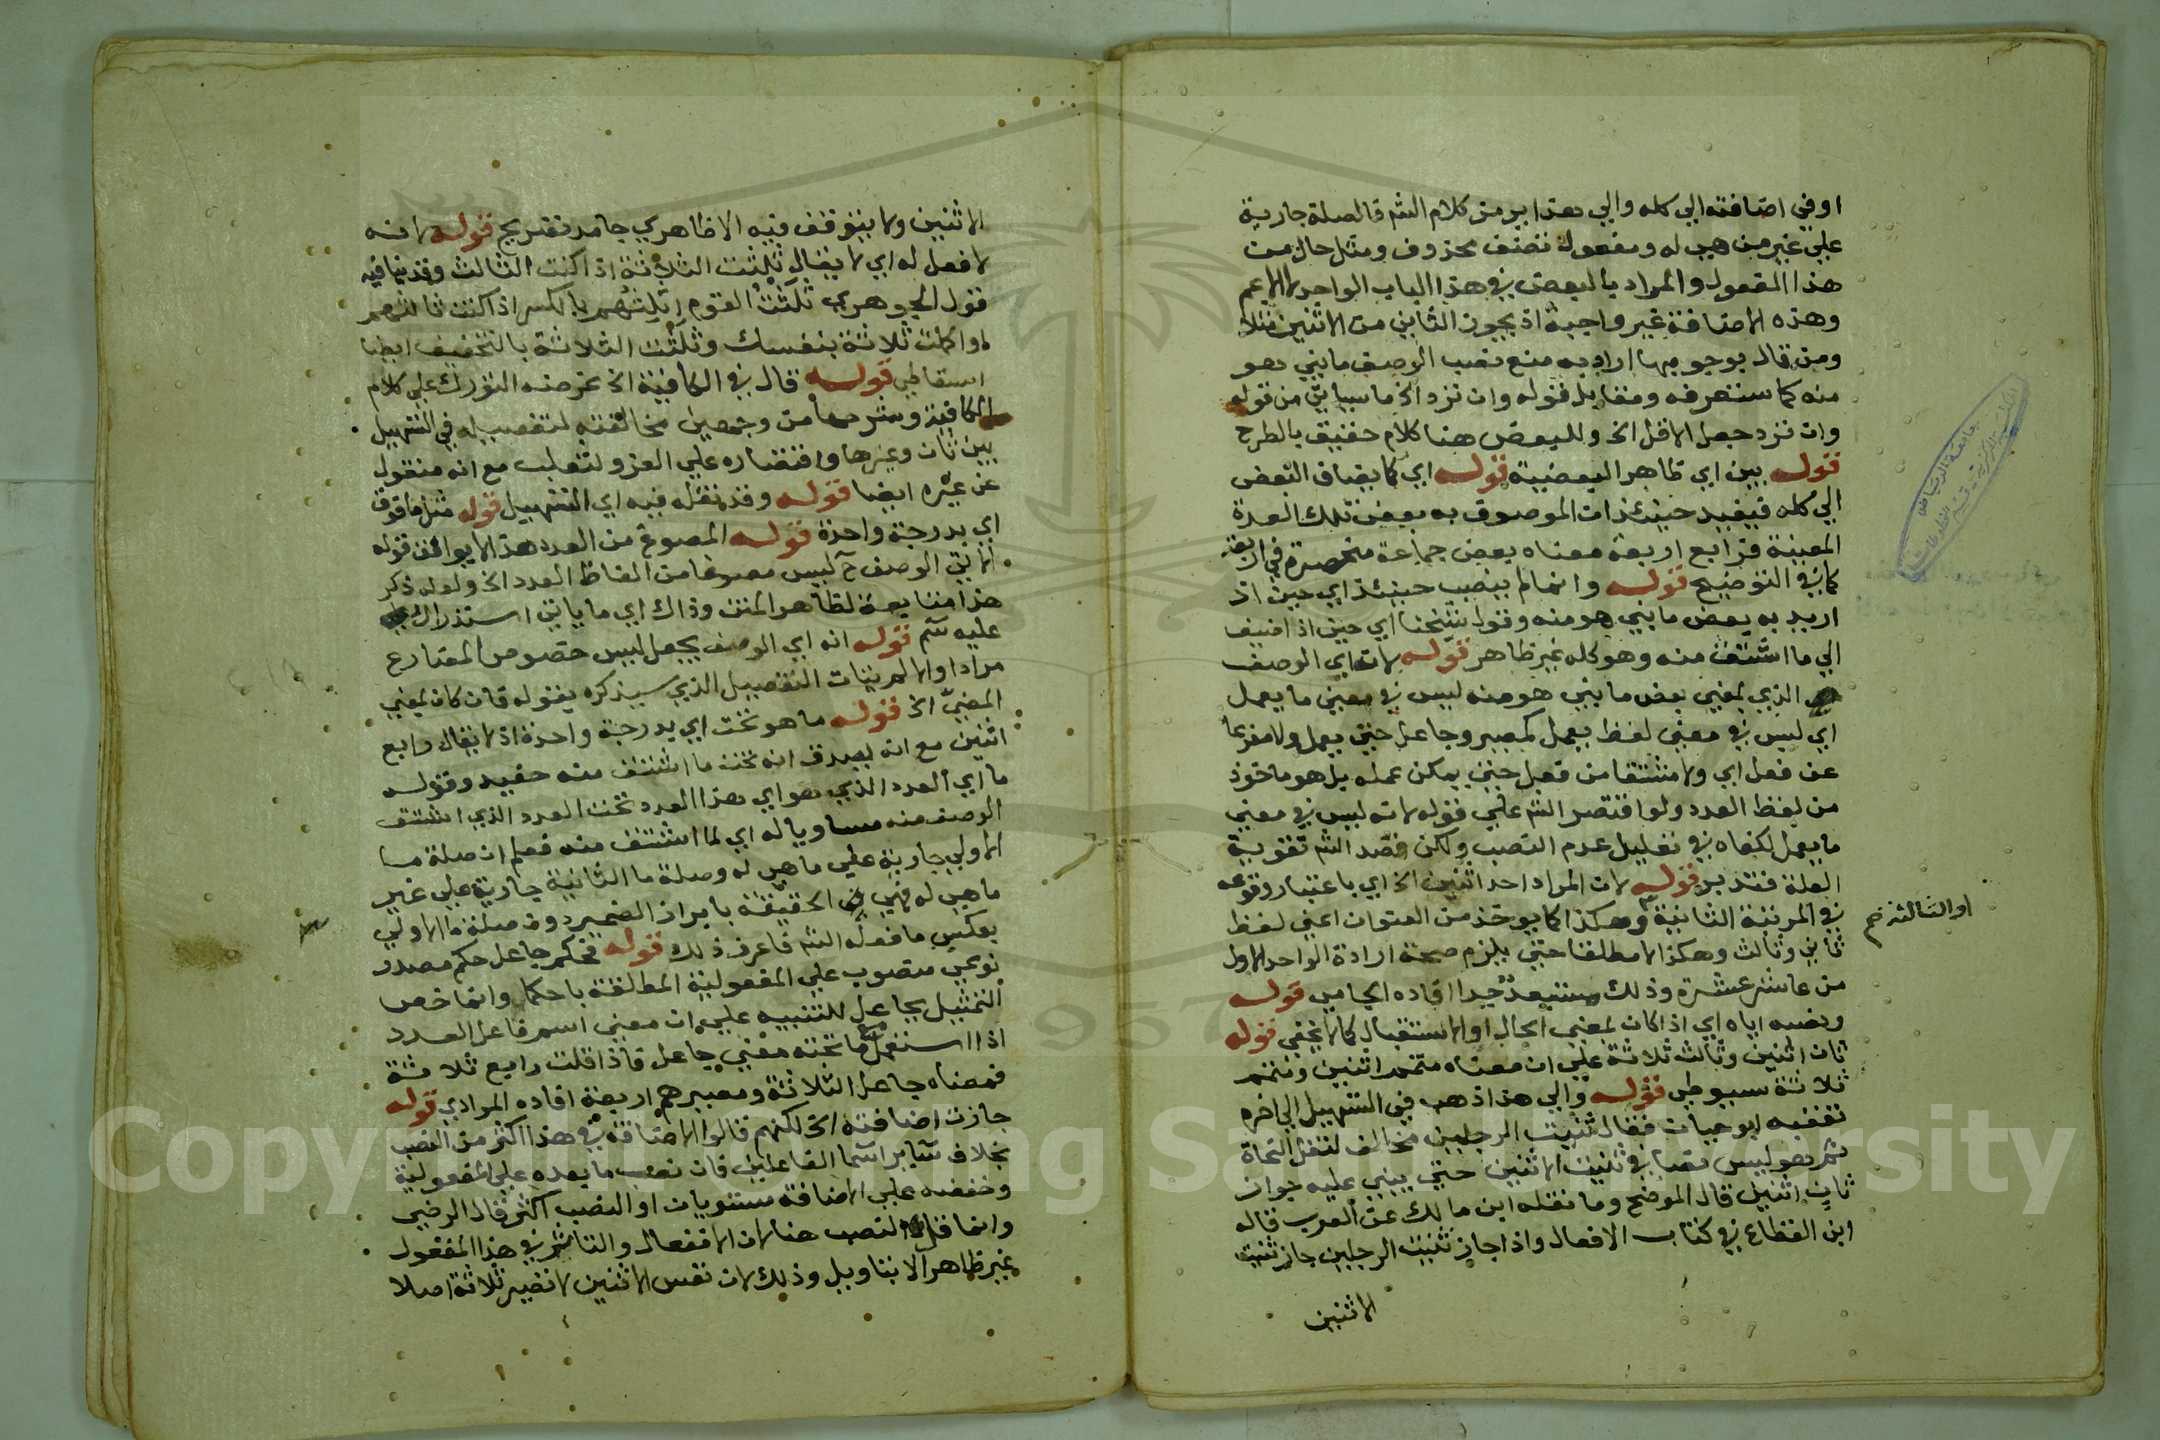 او في اضافته الي كله والي هذا يرمز كلام الشم فالصلة جارية
علي غير من هي له ومفعول نضف محذوف ومثل حال من
هذا المفعول والمراد بالبعض في هذا الباب الواحد لا الاعم
وهذه الاضافة غير واجبة اذ يجوز الثاني من الاثنين مثلا
ومن قال بوجوبها اراد به منع نصب الوصف ما بني هو
منه كما ستعرفه ومقابل قوله وان ترد الخ ما سياتي من قوله
وان ترد جعل الاقل الخ وللبعض هنا كلام حقيق بالطرح
قوله بين اي ظاهر البعضية قوله اي كما يضاف البعض
الي كله فيفيد حينئذ ان الموصوف به بعض تلك العدة
المعينة فرابع اربعة معناه بعض جماعة منحصرة في اربعة
كما في التوضيح قوله وانما لم ينصب حينئذ اي حين اذ
اريد به بعض ما بني هو منه وقول شيخنا اي حين اذ اضيف
الي ما اشتق منه وهو كله غير ظاهر قوله لانه اي الوصف
الذي بمعني بعض ما بني هو منه ليس في معني ما يعمل
اي ليس في معني لفظ يعمل كمصير وجاعل حتي يعمل ولا مفرعا
عن فعل اي ولا مشتقا من فعل حتي يمكن عمله بل هو ماخوذ
من لفظ العدد ولو اقتصر الشم علي قوله لانه ليس في معني
ما يعمل لكفاه في تعليل عدم النصب ولكن قصد الشم تقوية
العلة فتدبر قوله لان المراد احد اثنين الخ اي باعتبار وقوعه
في المرتبة الثانية وهكذا كما يوخذ من العنوان اعني لفظ
او الثالثة صح
ثاني وثالث وهكذا لا مطلقا حتي يلزم صحة ارادة الواحد الاول
من عاشر عشرة وذلك مستبعد جدا افاده الجامي قوله
ونصبه اياه اي اذا كان بمعني الحال او الاستقبال كما لا يخفي قوله
ثان اثنين وثالث ثلاثة علي ان معناه متمم اثنين ومتمم
ثلاثة سيوطي قوله والي هذا ذهب في التسهيل الي اخره
تعقبه ابو حيان فقال ثنيت الرجلين مخالف لنقل النحاة
ثم هو ليس نصا في ثنيت الاثنين حتي يبني عليه جواز
ثان اثنين قال الموضح وما نقله ابن مالك عن العرب قاله
ابن القطاع في كتاب الافعال واذا جاز ثنيت الرجلين جاز ثنيت
الاثنين
الاثنين ولا يتوقف فيه الا ظاهري جامد فقريح قوله لانه
لا فعل له اي لا يقال ثلثت الثلاثة اذا كنت الثالث وقد ينافيه
قول الجوهري ثلثت القوم اثلثهم بالكسر اذا كنت ثالثهم
او اكملت ثلاثة بنفسك وثلثت الثلاثة بالتخفيف ايضا
اسقاطي قوله قال في الكافية الخ غرضه التورك علي كلام
الكافية وشرحها من وجهين مخالفته لتفصيله في التسهيل
بين ثان وغيرها واقتصاره علي العزو لثعلب مع انه منقول
عن غيره ايضا قوله وقد نقله فيه اي التسهيل قوله مثل ما فوق
اي بدرجة واحدة قوله المصوغ من العدد هذا لا يوافق قوله
الاتي الوصف ح ليس مصوغا من الفاظ العدد الخ ولعله ذكر
هذا متابعة لظاهر المتن وذاك اي ما ياتي استدراك
عليه سم قوله انه اي الوصف يجعل ليس خصوص المضارع
مرادا والا لم يتات التفصيل الذي سيذكره بقوله فان كان بمعني
المضي الخ قوله ما هو تحت اي بدرجة واحدة اذ لا يقال رابع
اثنين مع انه يصدق انه تحت ما اشتق منه حفيد وقوله
ما اي العدد الذي هو اي هذا العدد تحت العدد الذي اشتق
الوصف منه مساويا له اي لما اشتق منه فعلم ان صلة ما
الاولي جارية علي ما هي له وصلة ما الثانية جارية علي غير
ما هي له فهي الحقيقة بابراز الضمير دون صلة ما الاولي
بعكس ما فعله الشم فاعرف ذلك قوله فحكم جاعل حكم مصدر
نوعي منصوب علي المفعولية المطلقة باحكما وانما خص
التمثيل بجاعل للتنبيه علي ان معني اسم فاعل العدد
اذا استعمل مع ما تحته معني جاعل فاذا قلت رابع ثلاثة
فمعناه جاعل الثلاثة ومصيرهم اربعة افاده المرادي قوله
جازت اضافته الخ لكنهم قالوا الاضافة في هذا اكثر من النصب
بخلاف ساير اسما الفاعلين فان نصب ما بعده علي المفعولية
وخفضه علي الاضافة مستويان او النصب اكثر قال الرضي
وانما قل النصب هنا لان الانفعال والتاثر في هذا المفعول
غير ظاهر الا بتاويل وذلك لان نفس الاثنين لا تصير ثلاثة اصلا
جامعة الرياض
Copyright © King Saud University
1957